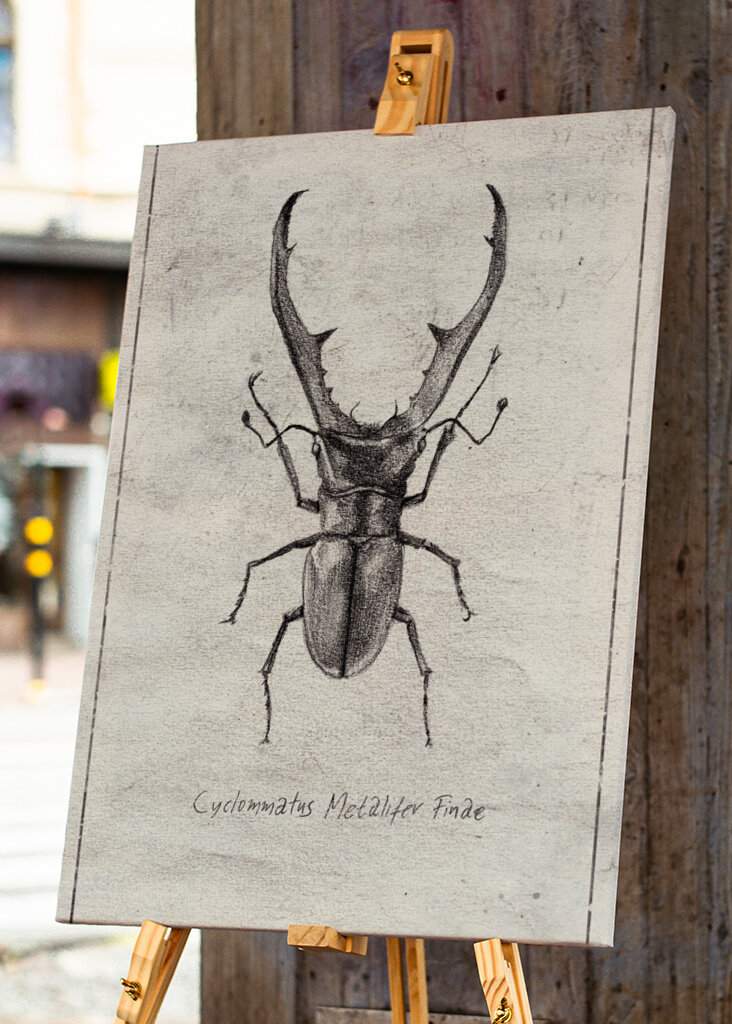 Cyclommatus Metalifer Finae